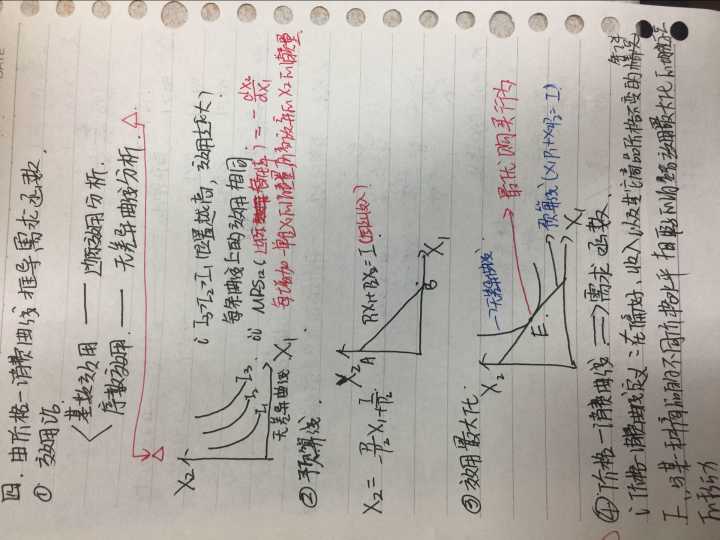 四. 由价格一消费曲线推导需求函数.
① 效用论.
基数效用 —— 边际效用分析.
序数效用. —— 无差异曲线分析.
X₂
I₁ I₂ I₃
无差异曲线 X₁
i I₃>I₂>I₁ (位置越高, 效用越大)
每条曲线上的效用相同.
ii MRS₁₂(边际替代率) = - dX₂/dX₁
每增加一单位X₁的消费量所需放弃的X₂的消费量
② 预算线.
X₂ = -P₁/P₂ X₁ + I/P₂
X₂
A
P₁X₁+P₂X₂ = I
B
X₁
③ 效用最大化.
X₂
无差异曲线
最优购买行为
E.
预算线(X₁P₁+X₂P₂ = I)
X₁
④ 价格一消费曲线 ⟹ 需求函数.
i 价格一消费曲线定义: 在偏好, 收入以及其它商品价格不变的情况
下, 与某一种商品的不同价格水平相联系的消费者效用最大化的均衡点
的轨迹